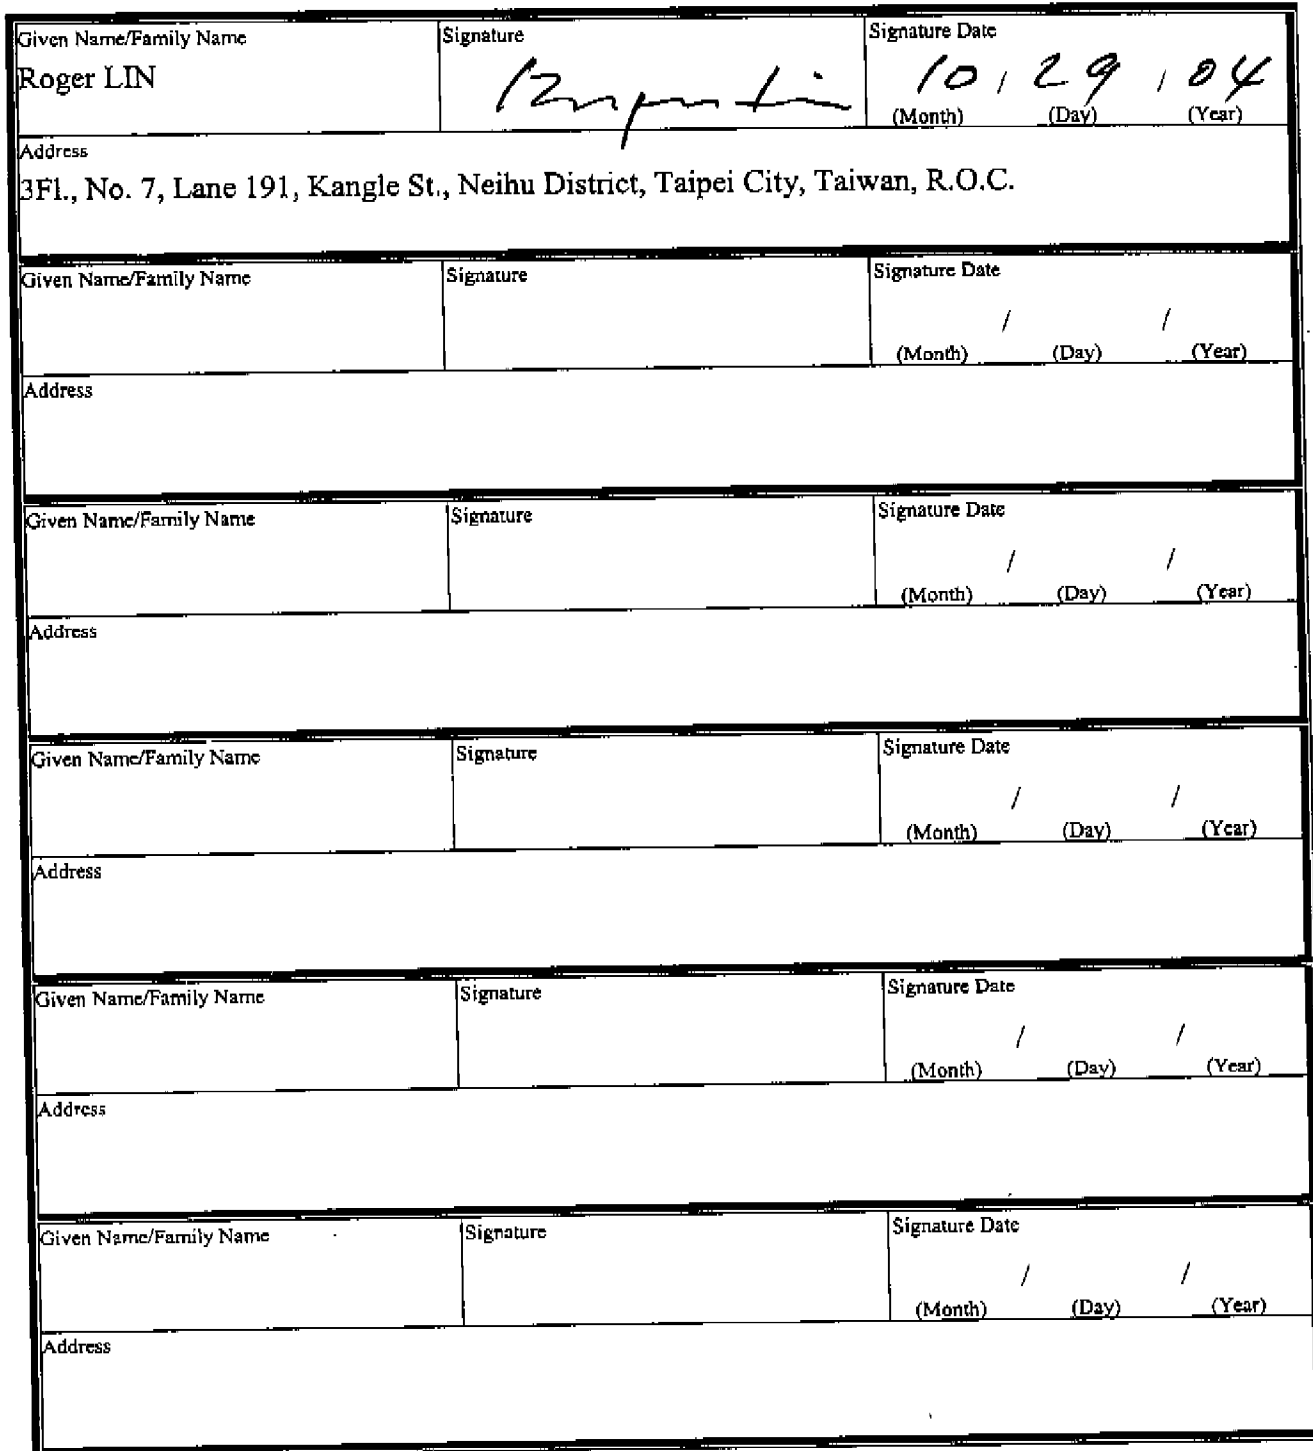 Given Name/Family Name Signature Signature Date
Roger LIN 10 / 29 / 04
(Month) (Day) (Year)
Address
3Fl., No. 7, Lane 191, Kangle St., Neihu District, Taipei City, Taiwan, R.O.C.
Given Name/Family Name Signature Signature Date
/ /
(Month) (Day) (Year)
Address
Given Name/Family Name Signature Signature Date
/ /
(Month) (Day) (Year)
Address
Given Name/Family Name Signature Signature Date
/ /
(Month) (Day) (Year)
Address
Given Name/Family Name Signature Signature Date
/ /
(Month) (Day) (Year)
Address
Given Name/Family Name Signature Signature Date
/ /
(Month) (Day) (Year)
Address